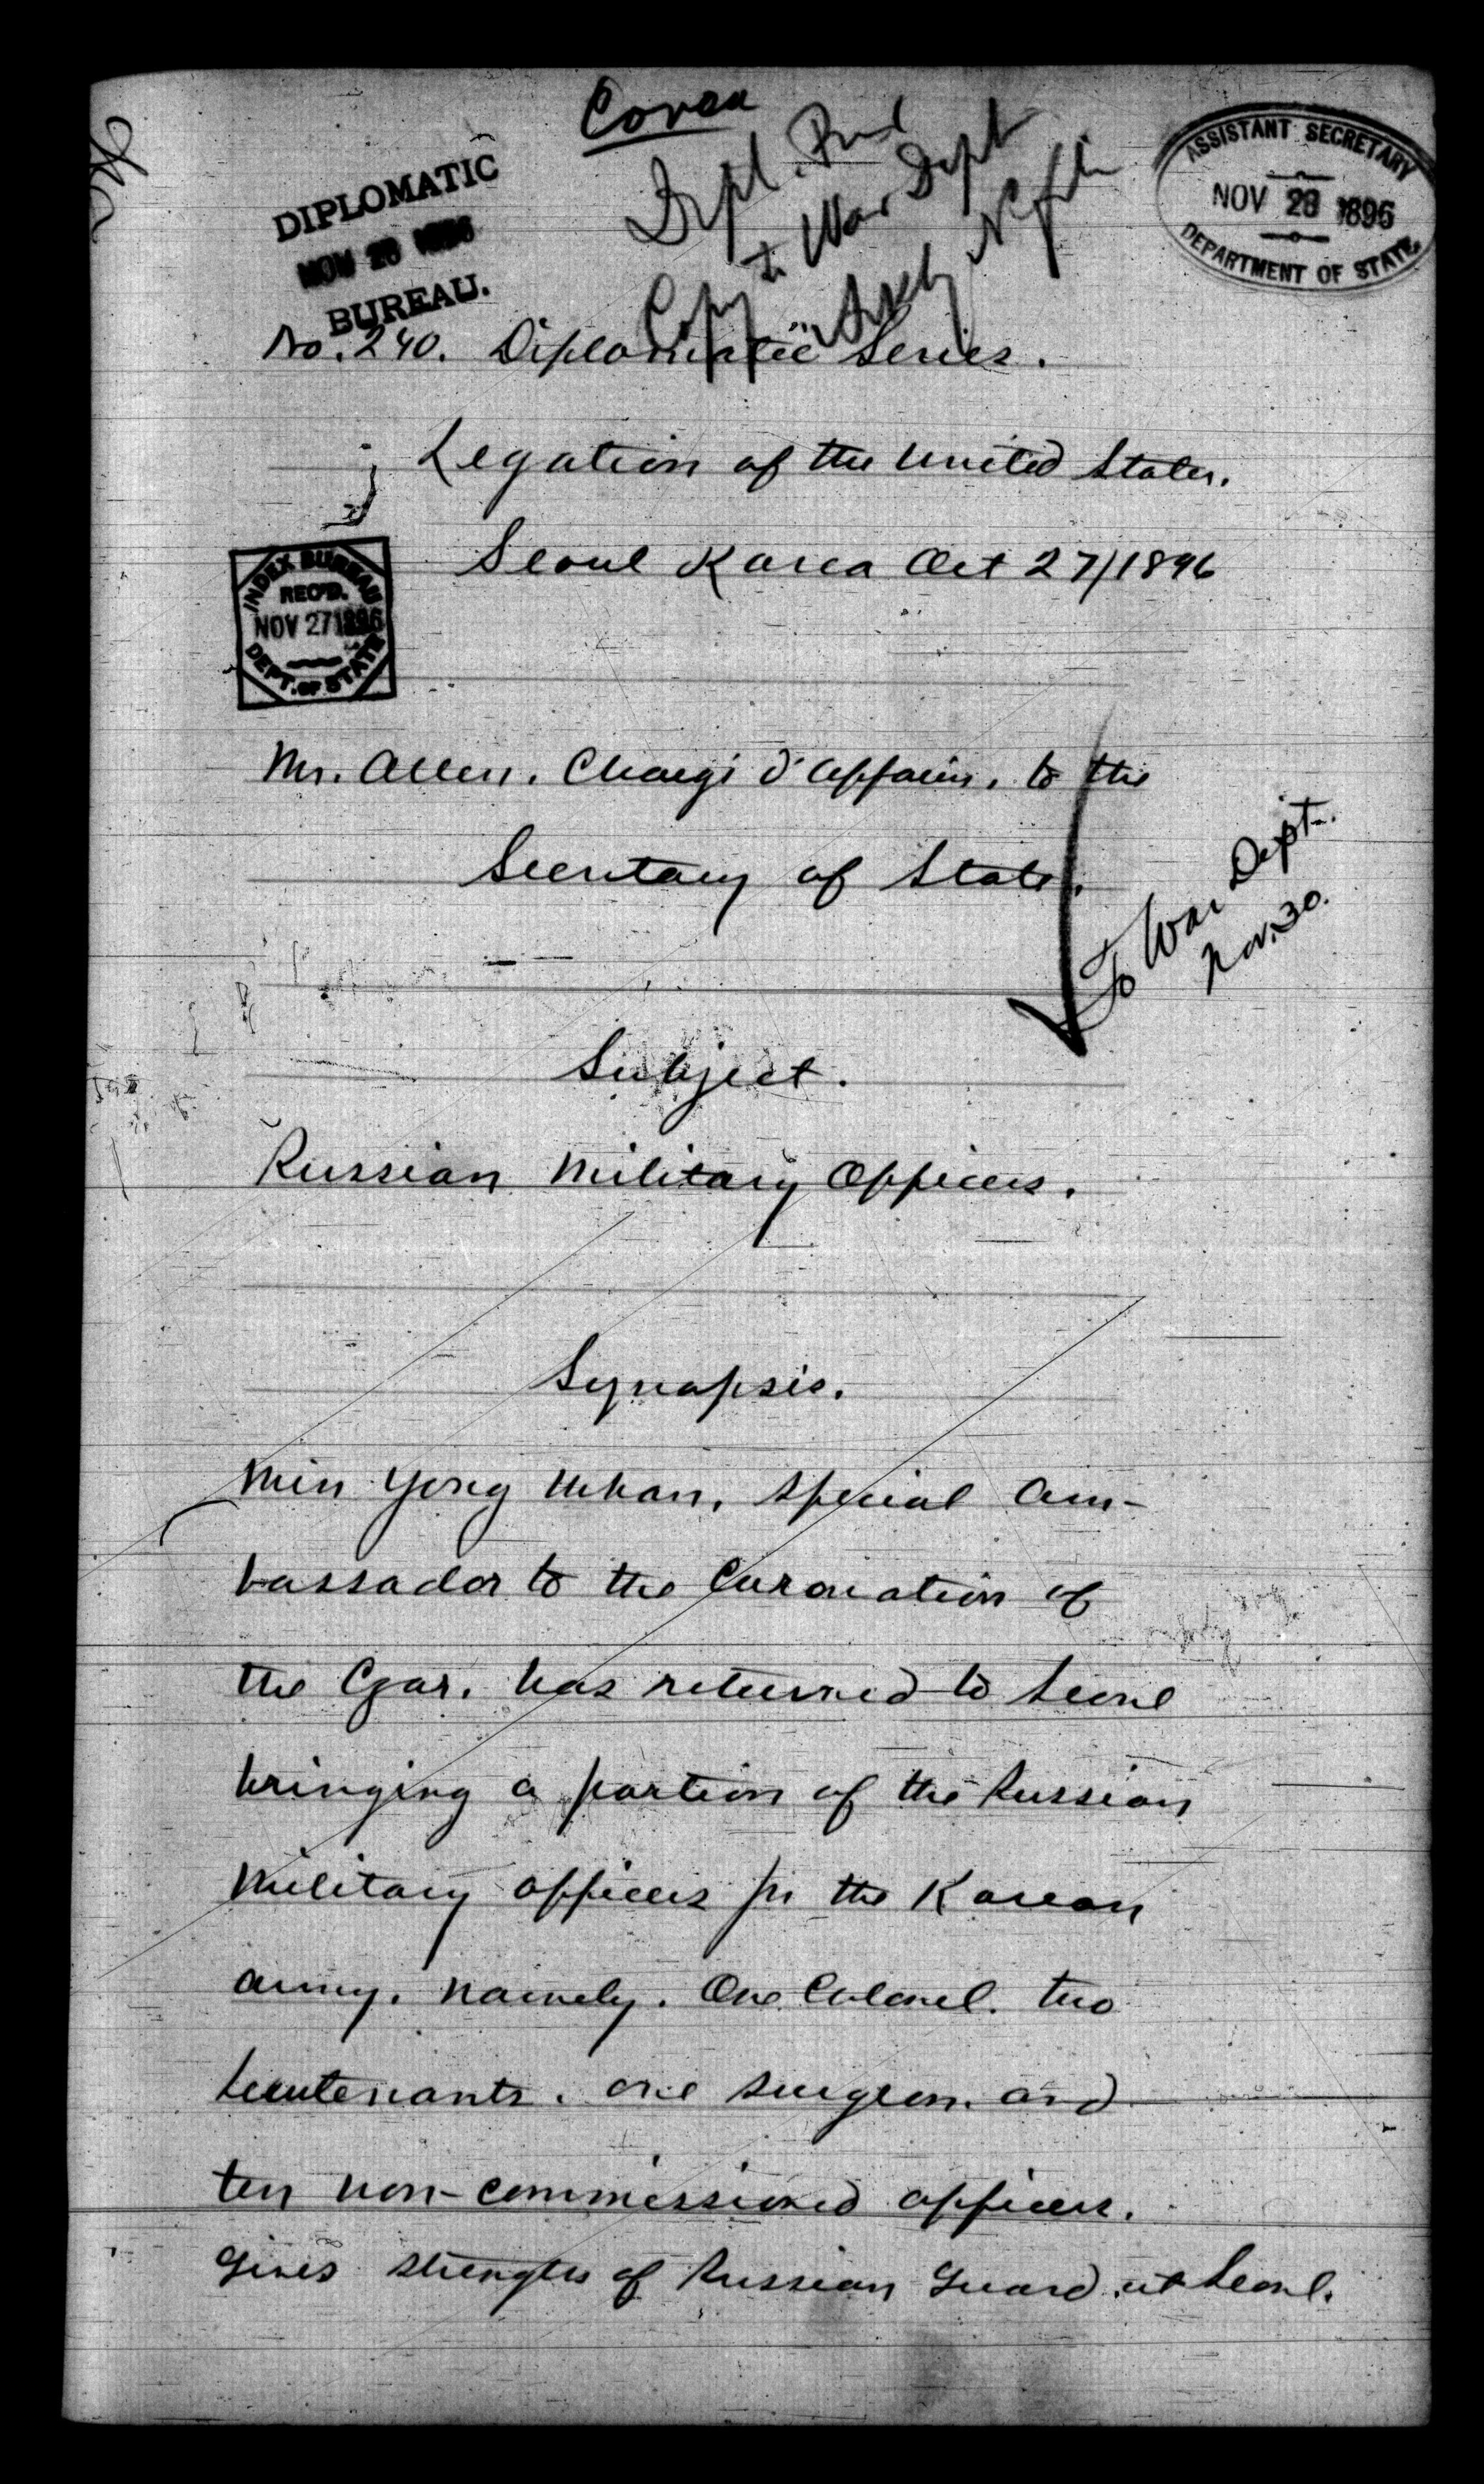 Corea
DIPLOMATIC
NOV 28 1896
BUREAU.
ASSISTANT SECRETARY
NOV 28 1896
DEPARTMENT OF STATE
Copy to War Dept
No. 240. Diplomatic Series.
Legation of the United States.
Seoul Korea Oct 27/1896
INDEX BUREAU
REC'D.
NOV 27 1896
DEPT. OF STATE
Mr. Allen, Chargé d'Affaires, to the
Secretary of State.
To War Dept.
Nov. 30.
Subject.
Russian Military Officers.
Synopsis.
Min Yong Whan, special Am-
bassador to the Coronation of
the Czar, has returned to Seoul
bringing a portion of the Russian
Military officers for the Korean
army, namely, One Colonel, two
lieutenants, one surgeon, and
ten non-commissioned officers.
Gives strength of Russian Guard at Seoul.